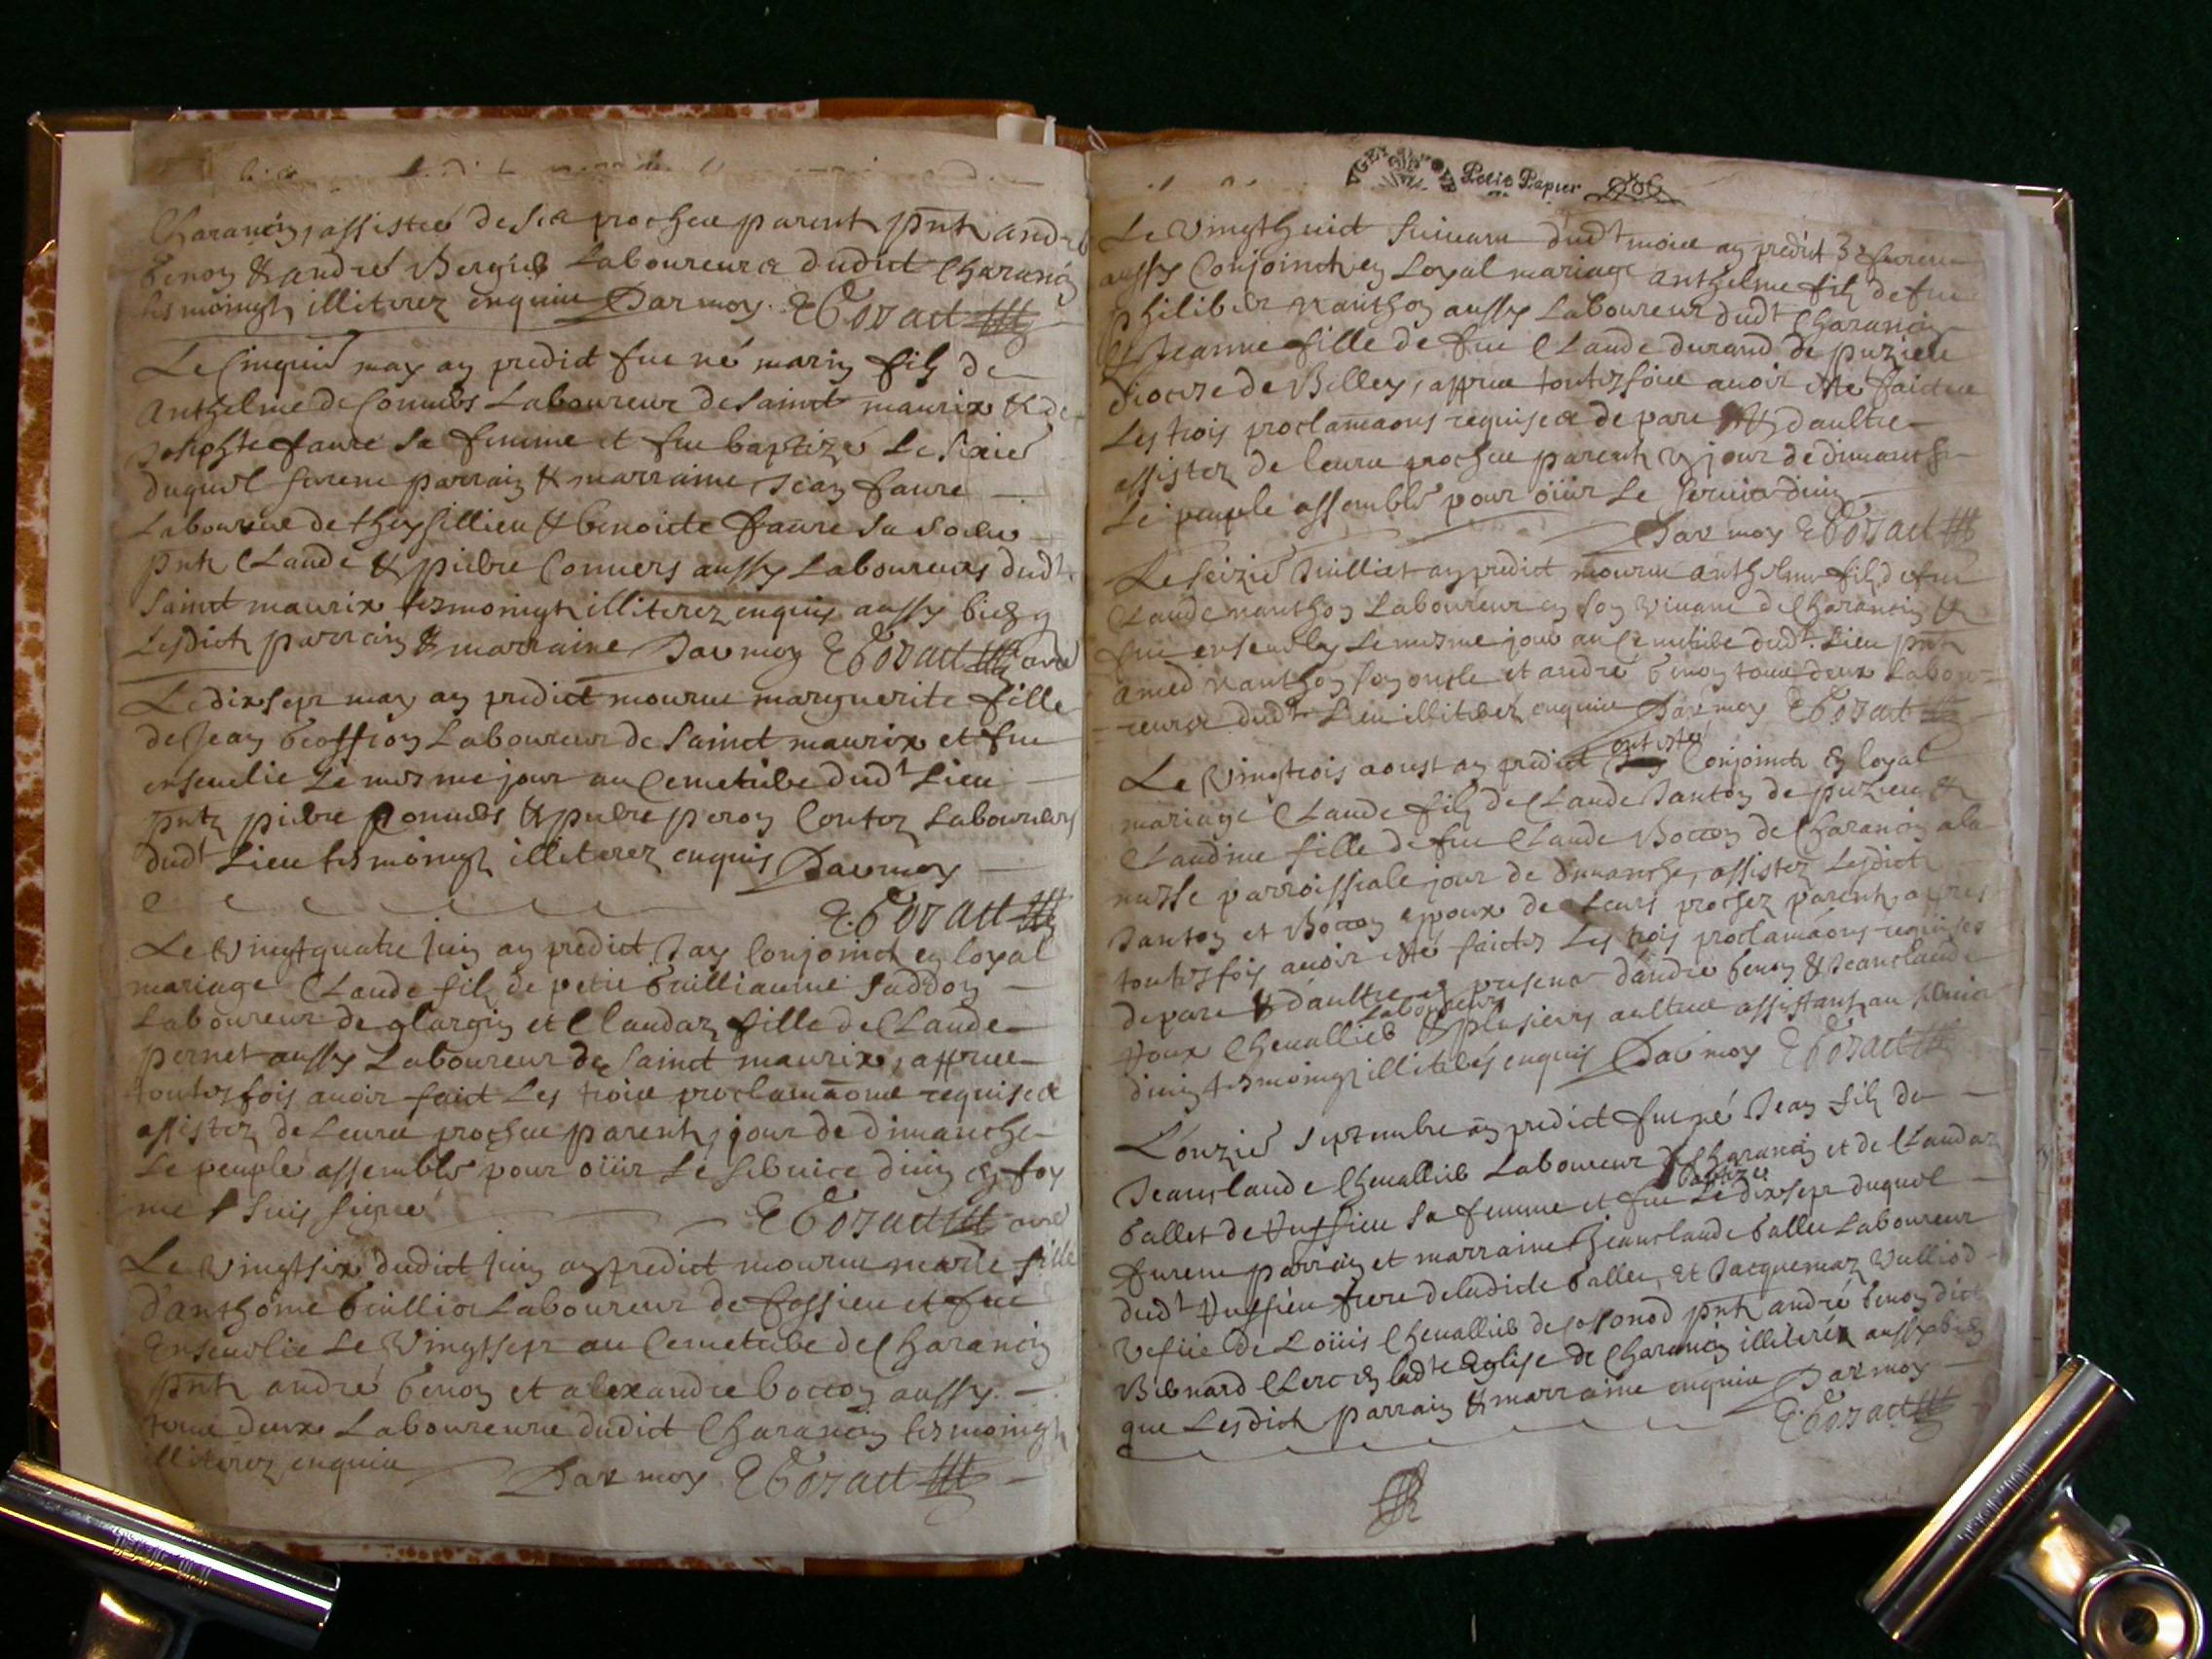 Charancin, assisteé de sea prochea parent pnts andre
benon & andré Bergier Laboureurs dudict Charancin
tesmoingts illiterez enquiu Par moy. E Gojact
Le Cinquie may an predict fut né marin filz de
Anthelme de Conners Laboureur de Sainct maurix & de
Josephte faure sa femme et fut baptizé Le sixie
duquel furent parrain & marraine Jean faure
Laboureur de theysillieu & benoicte faure sa soeur
pnts Claude & pierre Conners aussy Laboureurs dudt
Sainct maurix tesmoingts illiterez enquis aussy bien q
Lesdicts parrain & marraine Par moy E Gojact curé
Le dixsept may an predict mourut marguerite fille
de Jean Geoffron Laboureur de Sainct maurix et fut
ensevelie Le mesme jour au Cemetiere dudt Lieu
pnts pierre Conners & pierre peron Contoz Laboureurs
dudt Lieu tesmoingts illiterez enquis Par moy
E. Gojact
Le Vingtquatre juin an predict Jay Conjoinct en loyal
mariage Claude filz de petit Guilliaume Suddon
Laboureur de glargin et Claudaz fille de Claude
pernet aussy Laboureur de Sainct maurix, apprez
toutesfois avoir faict Les troix proclamaons requisea
assistez de Leurs prochea parents, jour de dimanche
Le peuple assemblé pour oüir Le service divin en foy
me suis signé E Gojact curé
Le Vingtsix dudict juin an predict mourut marie fille
d'anthome Guilliot Laboureur de Cossieu et fut
Ensevelie Le Vingtsept au Cemetiere de Charancin
pnts andré benon et alexandre boccon aussy
tous deux Laboureurs dudict Charancin tesmoingts
illiterez enquiu Par moy E Gojact
Petit Papier
Le Vingthuict suivant dudt mois an predict furent
aussy Conjoincts en Loyal mariage anthelme filz de feu
philibert nanthon aussy Laboureur dudt Charancin
& Jeanne fille de feu Claude durand de puzieu
diocese de Belley, apprez toutesfois avoir esté faictea
Les trois proclamaons requisea de part & daultre
assistez de leurs prochea parents un jour de dimanche
Le peuple assemblé pour oüir Le service divin
Par moy E Gojact
Le seizie Juilliet an predict mourut anthelme filz de feu
Claude nanthon Laboureur en son vivant de Charancin &
fut ensevely Le mesme jour au Cemetiere dudt Lieu pnts
amed nanthon son oncle et andré benon tous deux Labou-
reurs dudt Lieu illiterez enquiu Par moy E Gojact
Le Vingtrois aoust an predict ont estes Conjoincts en loyal
mariage Claude filz de Claude Janton de puzieu &
Claudine fille de feu Claude Boccon de Charancin a la
messe parroissiale jour de dimanche, assistez Lesdicts
Janton et Boccon espoux de Leurs prochez parents, apres
toutesfois avoir esté faictes Les trois proclamaons requises
de part & daultre en presence dandré benon & Jeanclaude
Chevallier Laboureurs & plusieurs aultres assistants au service
divin tesmoingts illiterés enquis Par moy E Gojact
Lonzie septembre an predict fut né Jean filz de
Jeanclaude Chevallier Laboureur de Charancin et de Claudaz
ballet de sa femme et fut baptizé Le dixsept duquel
furent parrain et marraine Jeanclaude ballet Laboureur
dudt frere de ladicte ballet, et Jacquemaz Vulliod
vefve de Loüis Chevallier de Jolonod pnts andré benon dict
Bernard Clerc en ladte Eglise de Charancin illiteréz aussy bien
que Lesdicts parrain & marraine enquiu Par moy
E. Gojact